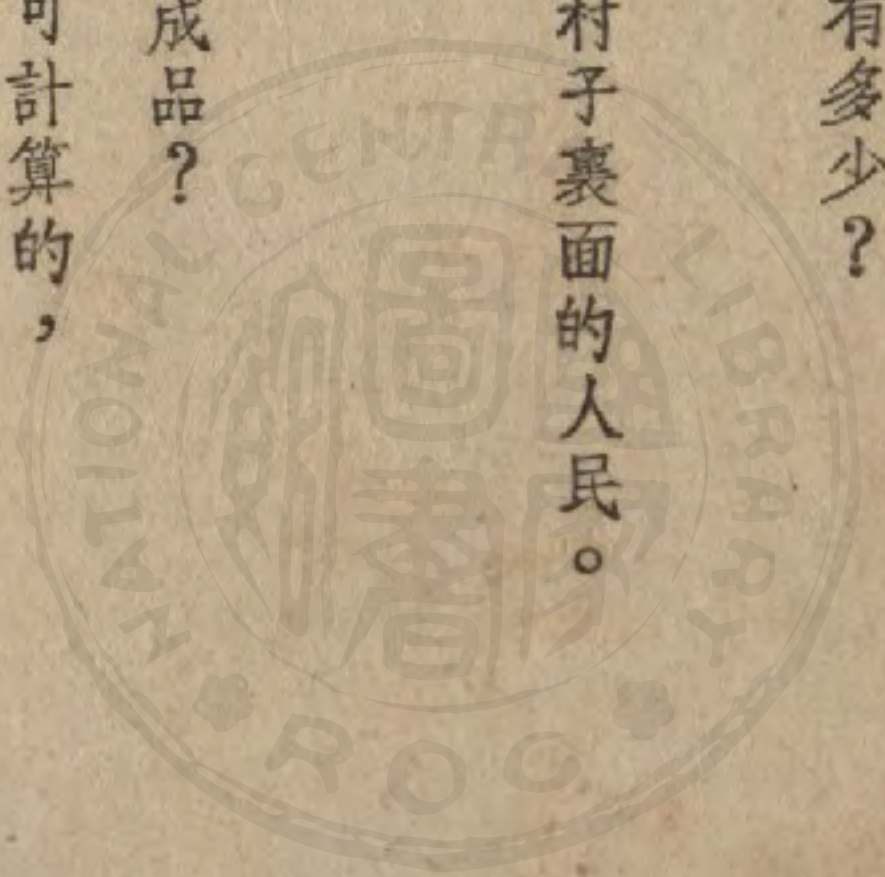 有多少？
村子裏面的人民。
成品？
可計算的，
NATIONAL CENTRAL LIBRARY
ROC